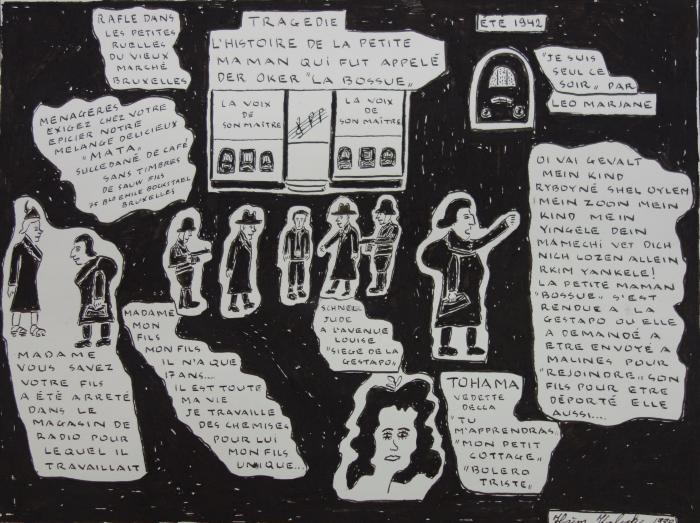 RAFLE DANS
LES PETITES
RUELLES
DU VIEUX
MARCHÉ
BRUXELLES
TRAGEDIE
L'HISTOIRE DE LA PETITE
MAMAN QUI FUT APPELÉ
DER OKER "LA BOSSUE"
ETÉ 1942
"JE SUIS
SEUL CE
SOIR" PAR
LEO MARJANE
MENAGERES
EXIGEZ CHEZ VOTRE
EPICIER NOTRE
MELANGE DELICIEUX
"MATA"
SUCCEDANÉ DE CAFÉ
SANS TIMBRES
DE SAUW FILS
BLD EMILE BOCKSTAEL
BRUXELLES
LA VOIX
DE
SON MAITRE
LA VOIX
DE
SON MAITRE
OI VAI GEVALT
MEIN KIND
RYBOYNÉ SHEL OYLEM
MEIN ZOON MEIN
KIND MEIN
YINGELE DEIN
MAMECHI VET DICH
NICH LOZEN ALLEIN
RKIM YANKELE!
LA PETITE MAMAN
"BOSSUE" S'EST
RENDUE A LA
GESTAPO OU ELLE
A DEMANDÉ A
ETRE ENVOYÉ A
MALINES POUR
"REJOINDRE" SON
FILS POUR ETRE
DÉPORTÉ ELLE
AUSSI...
MADAME
VOUS SAVEZ
VOTRE FILS
A ÉTÉ ARRETÉ
DANS LE
MAGASIN DE
RADIO POUR
LEQUEL IL
TRAVAILLAIT
MADAME
MON
FILS
MON FILS
IL N'A QUE
17 ANS...
IL EST TOUTE
MA VIE
JE TRAVAILLE
DES CHEMISES
POUR LUI
MON FILS
UNIQUE...
SCHNELL
JUDE
A L'AVENUE
LOUISE
"SIEGE DE LA
GESTAPO"
TOHAMA
VEDETTE
DECCA
"TU
M'APPRENDRAS"
"MON PETIT
COTTAGE"
"BOLERO
TRISTE"